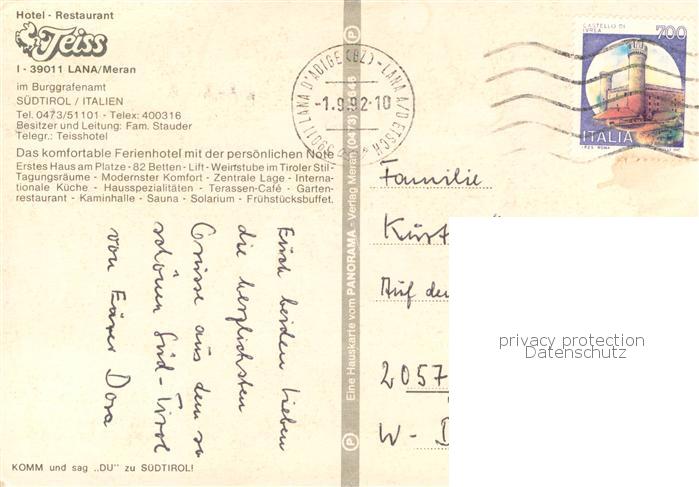 Hotel - Restaurant
Teiss
I - 39011 LANA/Meran
im Burggrafenamt
SÜDTIROL / ITALIEN
Tel. 0473/51101 - Telex: 400316
Besitzer und Leitung: Fam. Stauder
Telegr.: Teisshotel
Das komfortable Ferienhotel mit der persönlichen Note
Erstes Haus am Platze - 82 Betten - Lift - Weinstube im Tiroler Stil -
Tagungsräume - Modernster Komfort - Zentrale Lage - Interna-
tionale Küche - Hausspezialitäten - Terassen-Café - Garten-
restaurant - Kaminhalle - Sauna - Solarium - Frühstücksbuffet.
Euch beiden lieben
die herzlichsten
Grüsse aus dem so
schönen Süd-Tirol
von Eurer Dora
KOMM und sag „DU" zu SÜDTIROL!
Eine Hauskarte vom PANORAMA - Verlag Meran (0473)
39011 LANA D'ADIGE (BZ) - LANA A/D ETSCH
-1.9.92-10
CASTELLO DI
IVREA
700
ITALIA
Familie
Kurt
Auf der
2057
W - D
privacy protection
Datenschutz